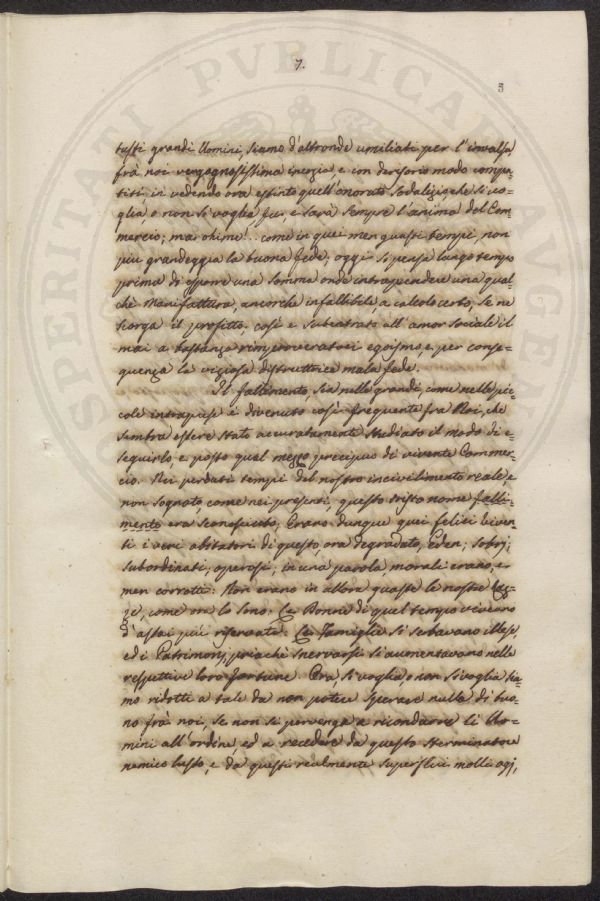 7.
5
tutti grandi Uomini, siamo d'altronde umiliati per l'invalsa,
frà noi vergognosissima inerzia, e con derisorio modo compa-
titi, in vedendo ora estinto quell'onorato Sodalizio che si vo-
glia, o non si voglia fu, e sarà sempre l'anima del Com-
mercio; mai ohime! .. come in quei men guasti tempi, non
più grandeggia la buona fede; oggi si pensa lungo tempo
prima di esporre una somma onde intraprendere una qual-
che Manifattura, ancorche infallibile, a calcolo certo, se ne
scorga il profitto; così è subentrato all'amor sociale il
mai a bastanza rimproveratoci egoismo, e per conse-
guenza la viziosa distruttrice mala fede.
Il fallimento, sia nelle grandi, come nelle pic-
cole intraprese è divenuto così frequente fra Noi, che
sembra essere stato accuratamente studiato il modo di e-
seguirlo, e posto qual mezzo precipuo di vivente Commer-
cio. Nei perduti tempi del nostro incivilimento reale, e
non sognato, come nei presenti, questo tristo nome falli-
mento era sconosciuto; Erano dunque quei felici viven-
ti i veri abitatori di questo, ora degradato, Eden; sobrj;
subordinati; operosi; in una parola, morali erano, e
men corrotti: Non erano in allora guaste le nostre Leg-
gi, come ora lo sono: Le Donne di quel tempo vivevano
d'assai più riservate: Le Famiglie si serbavano illese,
ed i Patrimonj, priachè snervarsi si aumentavano nelle
respettive loro fortune. Ora, si voglia, o non si voglia sia-
mo ridotti a tale da non potere sperare nulla di buo-
no frà noi, se non si pervenga a ricondurre li Uo-
mini all'ordine, ed a recedere da questo sterminatore
nemico lusso, e da questi realmente superflui molli agj,
SPERITATI PVBLICAE AVGENDAE